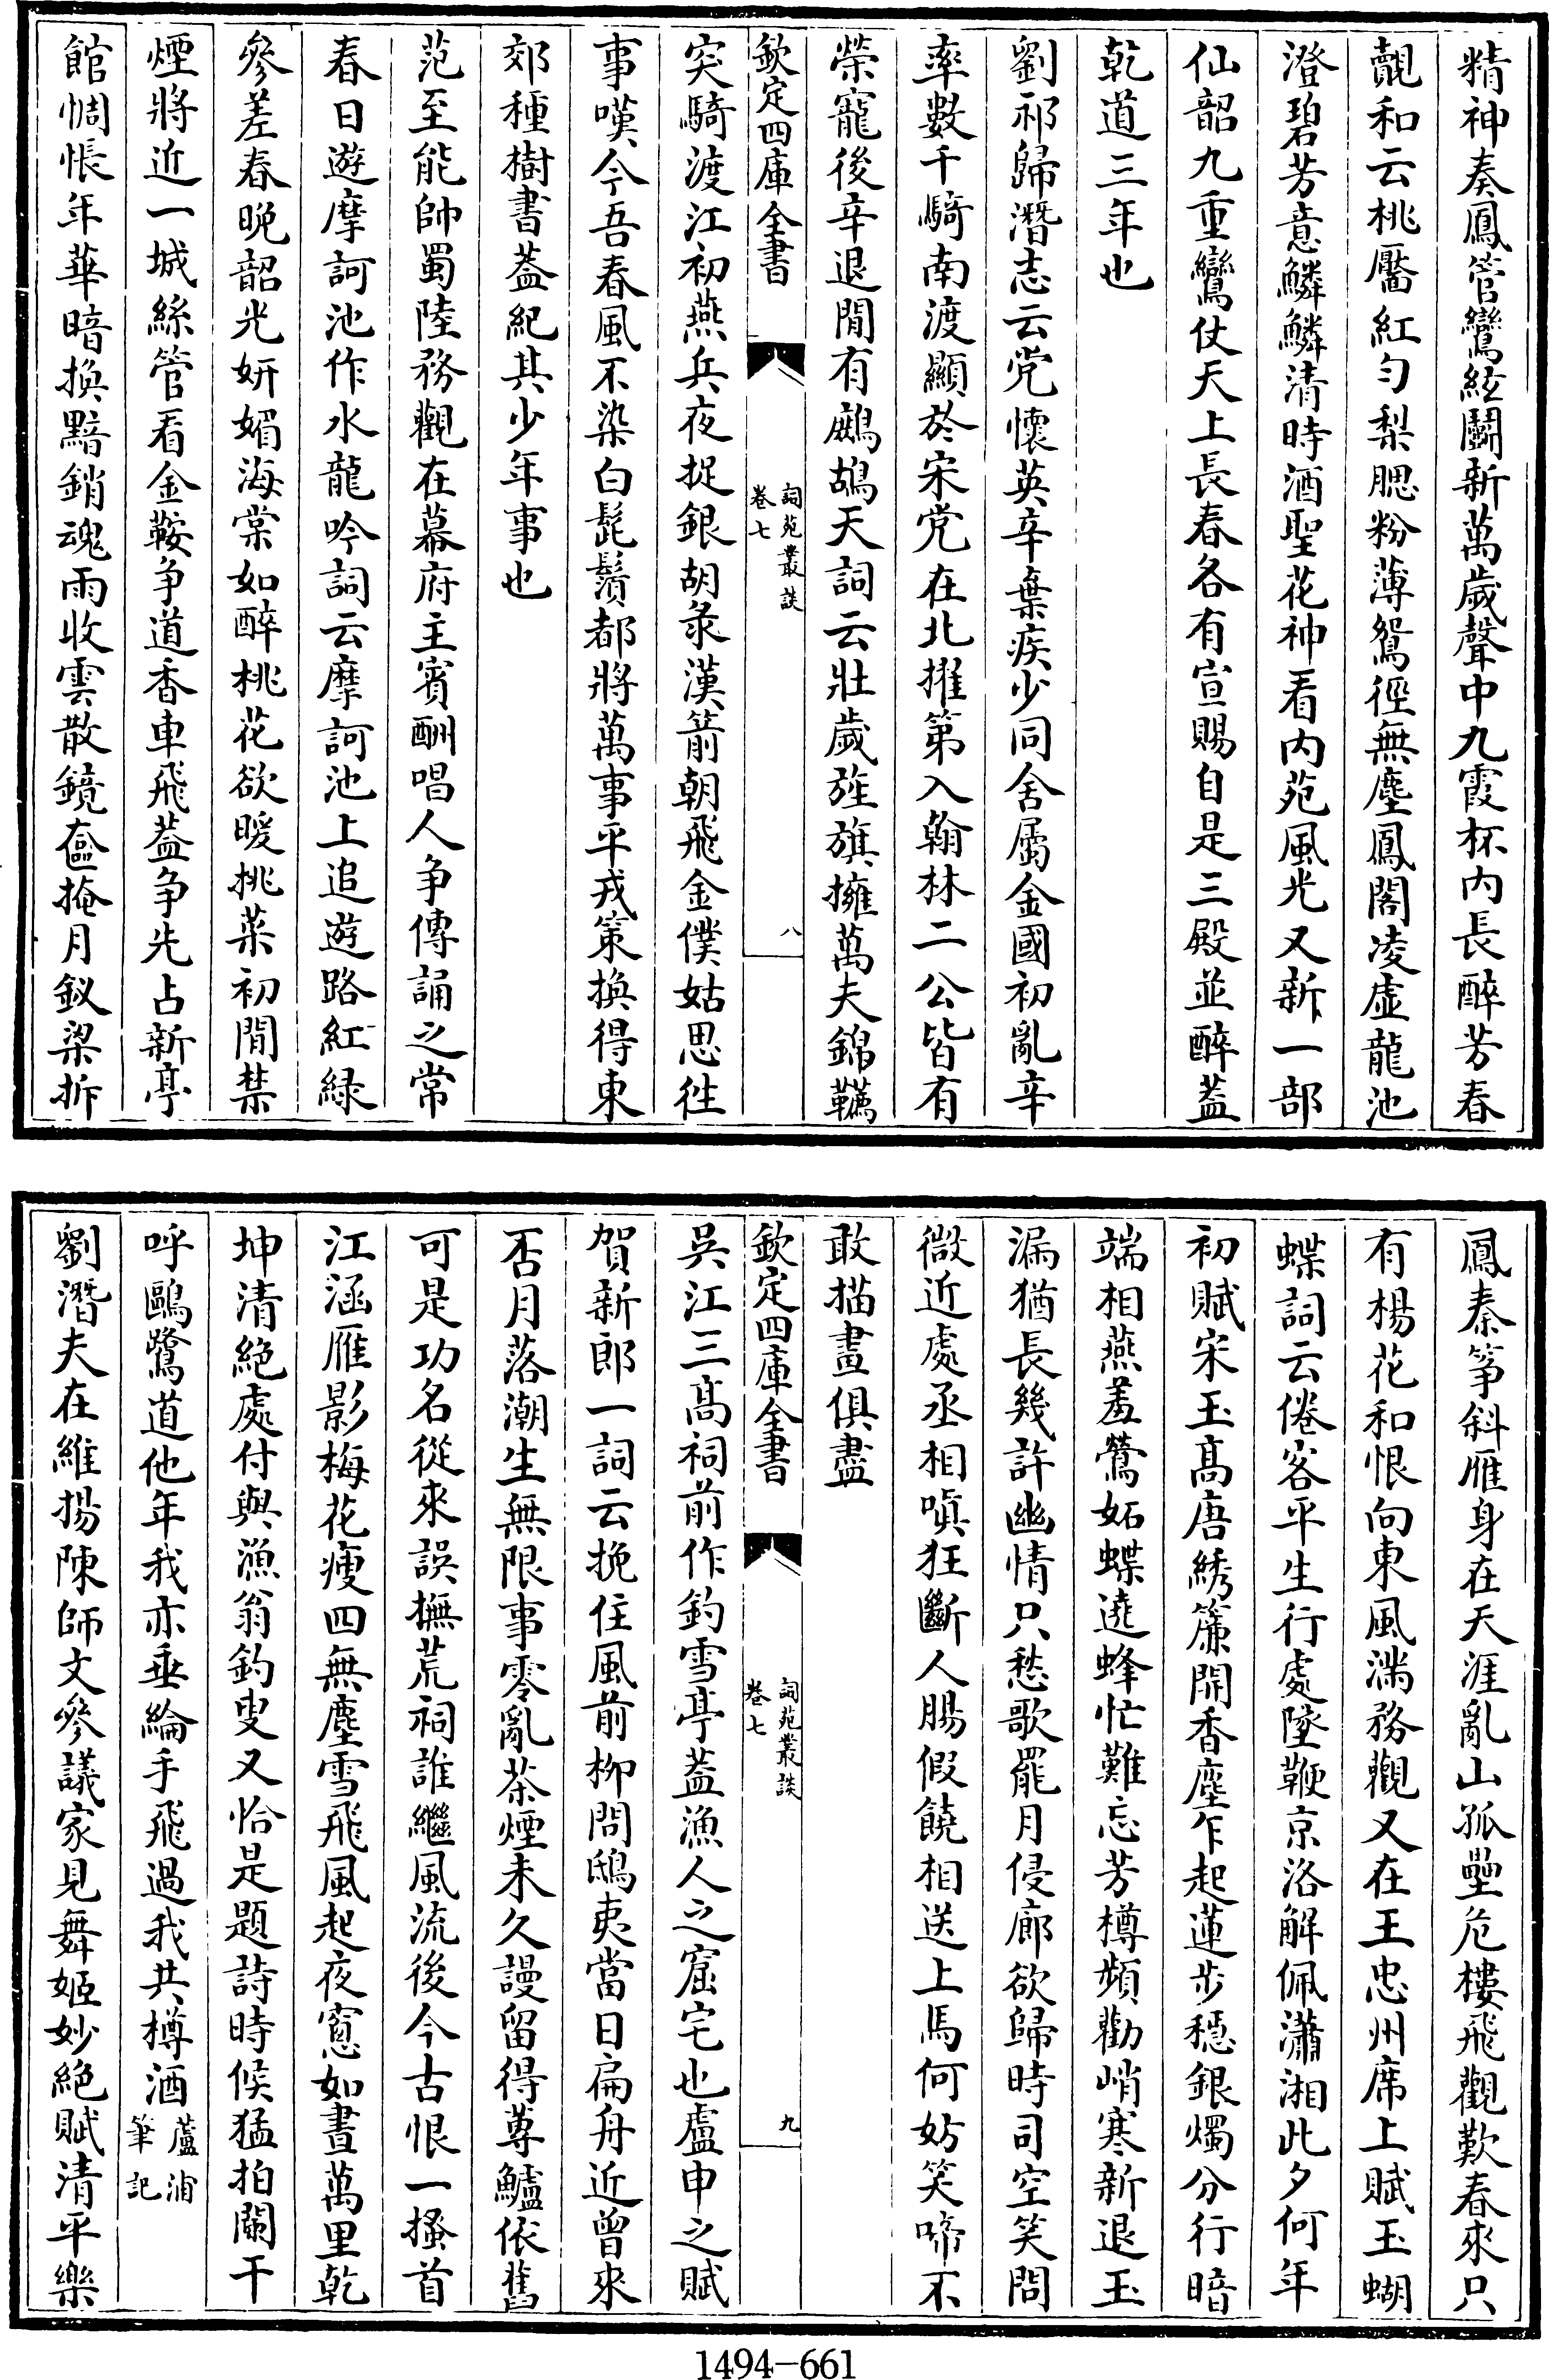 精神奏鳳管鸞絃鬬新萬歲聲中九霞杯内長醉芳春
覿和云桃靨紅勻梨腮粉薄鴛徑無塵鳳閣凌虛龍池
澄碧芳意鱗鱗清時酒聖花神看内苑風光又新一部
仙韶九重鸞仗天上長春各有宣賜自是三殿並醉蓋
乾道三年也
劉祁歸潛志云党懷英辛棄疾少同舍屬金國初亂辛
率數千騎南渡顯於宋党在北擢第入翰林二公皆有
榮寵後辛退閒有鷓鴣天詞云壯歲旌旗擁萬夫錦韉
欽定四庫全書
詞苑叢談
卷七
八
突騎渡江初燕兵夜捉銀胡䩮漢箭朝飛金僕姑思徃
事嘆今吾春風不染白髭鬚都將萬事平戎策換得東
郊種樹書葢紀其少年事也
范至能帥蜀陸務觀在幕府主賓酬唱人争傳誦之常
春日遊摩訶池作水龍吟詞云摩訶池上追遊路紅緑
參差春晚韶光妍媚海棠如醉桃花欲暖挑菜初閒禁
煙將近一城絲管看金鞍争道香車飛葢争先占新亭
館惆悵年華暗換黯銷魂雨收雲散鏡奩掩月釵梁拆
鳳秦筝斜雁身在天涯亂山孤壘危樓飛觀歎春來只
有楊花和恨向東風滿務觀又在王忠州席上賦玉蝴
蝶詞云倦客平生行處墜鞭京洛解佩瀟湘此夕何年
初賦宋玉髙唐綉簾開香塵乍起蓮步穩銀燭分行暗
端相燕羞鶯妬蝶遶蜂忙難忘芳樽頻勸峭寒新退玉
漏猶長幾許幽情只愁歌罷月侵廊欲歸時司空笑問
微近處丞相嗔狂斷人腸假饒相送上馬何妨笑啼不
敢描畫俱盡
欽定四庫全書
詞苑叢談
卷七
九
吳江三髙祠前作釣雪亭葢漁人之窟宅也盧申之賦
賀新郎一詞云挽住風前柳問鴟夷當日扁舟近曾來
否月落潮生無限事零亂茶煙未久謾留得蓴鱸依舊
可是功名從來誤撫荒祠誰繼風流後今古恨一搔首
江涵雁影梅花瘦四無塵雪飛風起夜窗如晝萬里乾
坤清絶處付與漁翁釣叟又恰是題詩時候猛拍闌干
呼鷗鷺道他年我亦垂綸手飛過我共樽酒蘆浦筆記
劉潛夫在維揚陳師文參議家見舞姬妙絶賦清平樂
1494-661